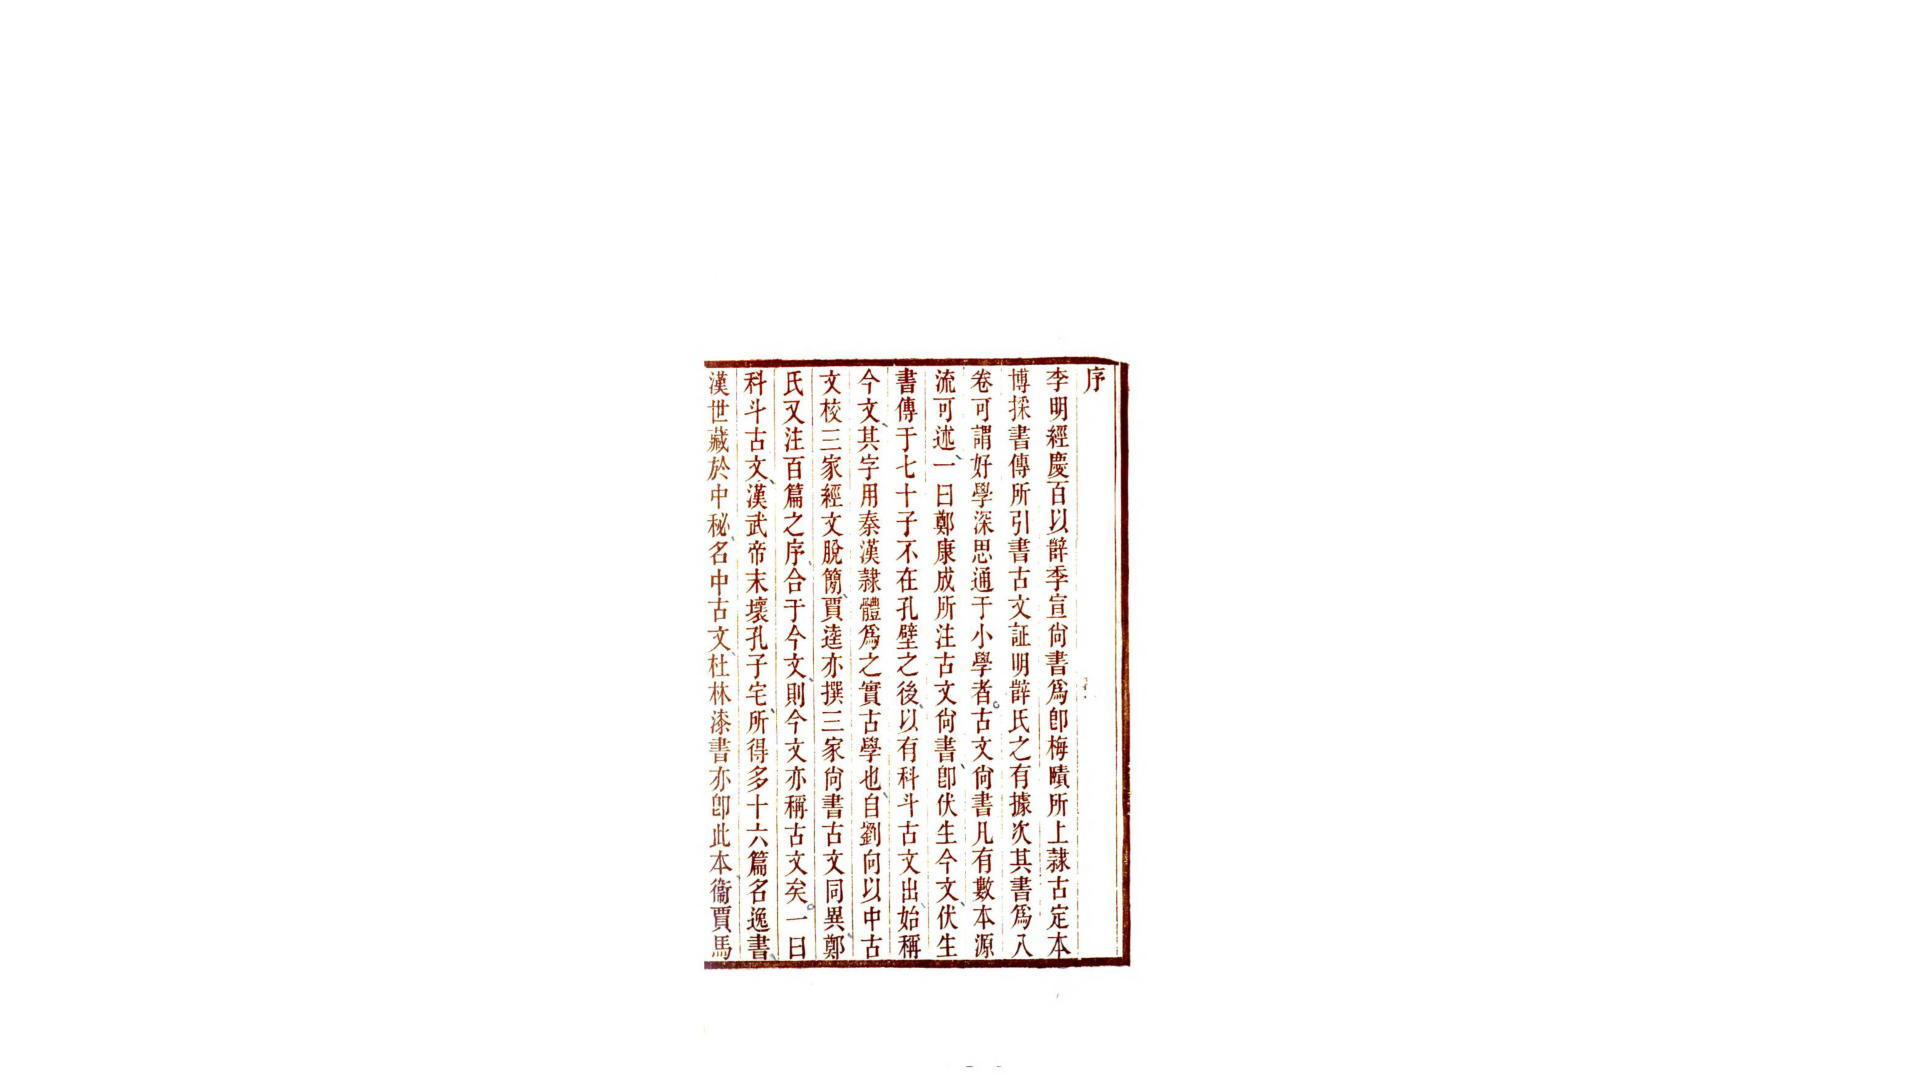 序
李明經慶百以辥季宣尙書爲卽梅賾所上隸古定本
博採書傳所引書古文証明辥氏之有據次其書爲八
卷可謂好學深思通于小學者。古文尙書凡有數本源
流可述、一曰鄭康成所注古文尙書、卽伏生今文、伏生
書傳于七十子不在孔壁之後、以有科斗古文出、始稱
今文、其字用秦漢隸體爲之實古學也、自劉向以中古
文校三家經文脫簡、賈逵亦撰三家尙書古文同異、鄭
氏又注百篇之序、合于今文、則今文亦稱古文矣。一曰
科斗古文、漢武帝末壞孔子宅、所得多十六篇名逸書、
漢世藏於中秘、名中古文、杜林漆書亦卽此本、衞賈馬